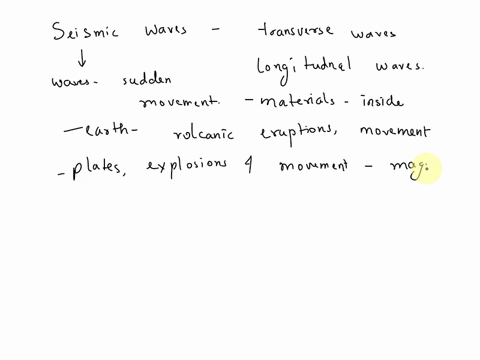 Seismic waves - transverse waves
↓ longitudnal waves.
waves - sudden
movement - materials - inside
- earth - volcanic eruptions, movement
- plates, explosions & movement - mag